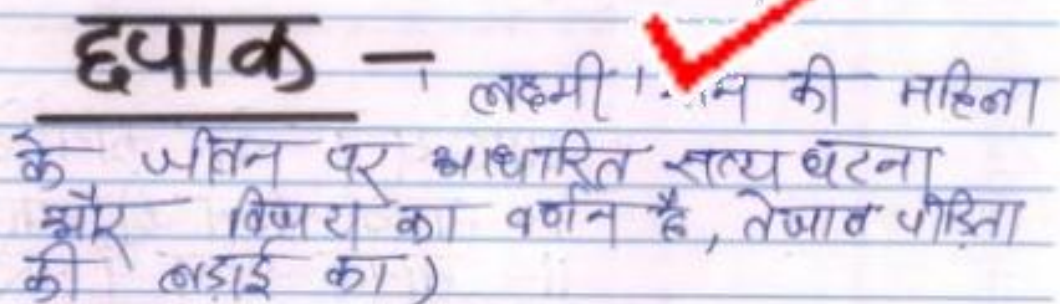 छपाक -
'लक्ष्मी' की महिला
के जीवन पर आधारित सत्य घटना
और विजय का वर्णन है, तेजाब पीड़िता
की लड़ाई का)